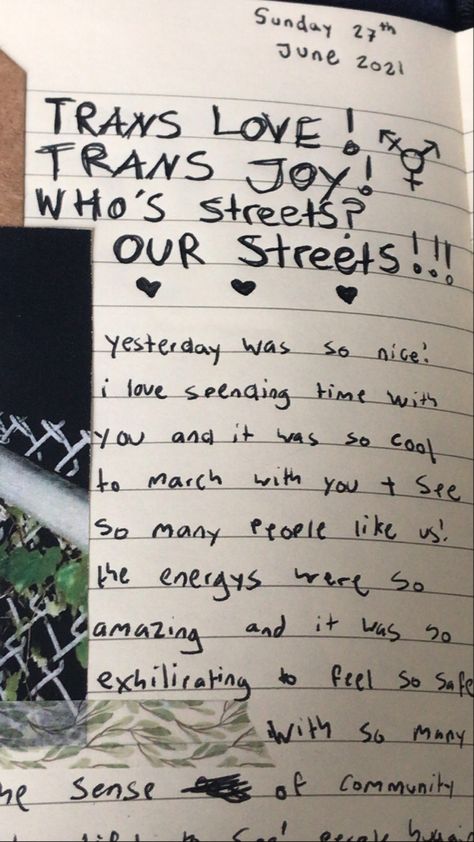 Sunday 27th
June 2021
TRANS LOVE!
TRANS JOY!
WHO'S Streets?
OUR Streets!!!
yesterday was so nice!
i love spending time with
you and it was so cool
to march with you + see
so many people like us!
the energys were so
amazing and it was so
exhilirating to feel so safe
with so many
sense of community
people